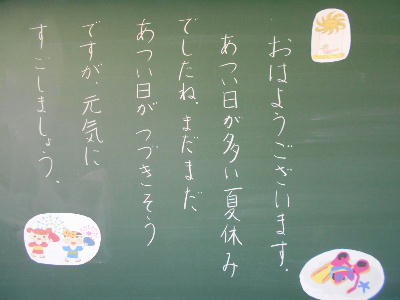 おはようございます.
あつい日が多い夏休み
でしたね.まだまだ、
あつい日がつづきそう
ですが、元気に
すごしましょう.